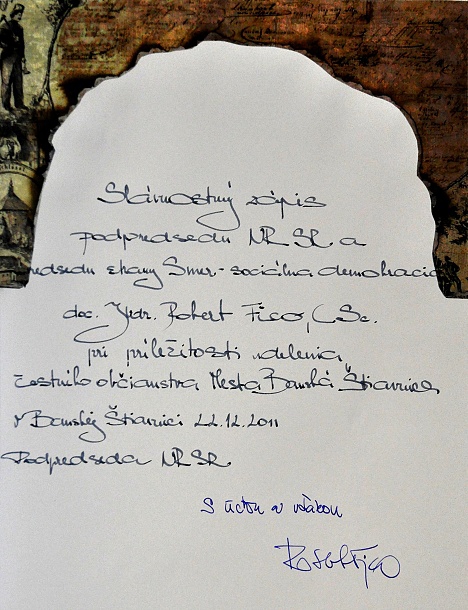 Slávnostný zápis
podpredsedu NR SR a
predsedu strany Smer - sociálna demokracia
doc. Judr. Robert Fico, CSc.
pri príležitosti udelenia
čestného občianstva Mesta Banská Štiavnica
v Banskej Štiavnici 22.12.2011
Podpredseda NR SR
S úctou a vďakou
Robert Fico